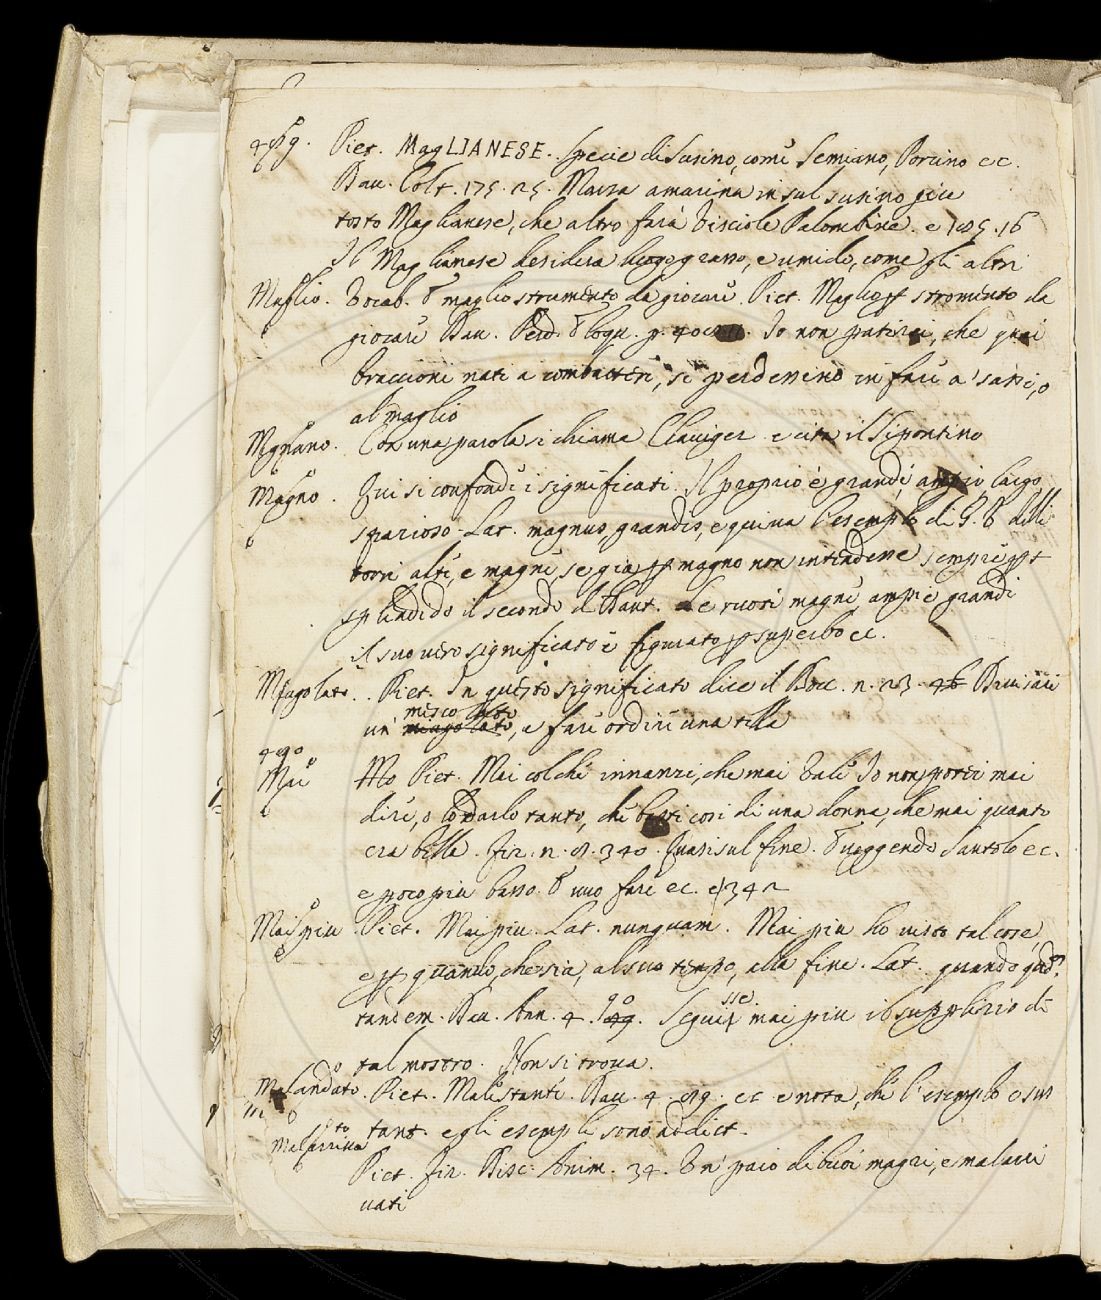 Piet. MagLIANESE. Specie di Susino, come Semiano, Porcino ec.
Dav. Colt. 175. 25. Marza amarina in sul susino piu
tosto Maglianese, che altro farà Visciole Palombine. e 185. 16
Il Maglianese desidera luogo grasso, e umido, come gli altri
Maglio. Vocab. maglio strumento da giocare. Piet. Maglio stromento da
giocare Dav. Perd. eloqu. p. Io non patirei, che quei
braccioni nati a combatteri, si perdessino in fare a' sassi, o
al maglio
Magnano. Con una parola si chiama Claviger e cita il Sipontino
Magno. Qui si confondi i significati. Il proprio è grandi, largo,
spazioso. Lat. magnus, grandis, e quiva l'esemplo di G. V. delli
torri alti, e magni, se gia magno non intendesse sempre
splendido il secondo di Dant. e cuori magni, ampi e grandi
il suo vero significato è figurato superbo ec.
Miagolato. Piet. In questo significato dice il Bocc. n. 23. Divisari
un miscolato, e fare ordire una tela
490
Mai Mo Piet. Mai colché innanzi, che mai Vale Io non potei mai
dire, o lodarlo tanto, che basti così di una donna, che mai quanto
era bella. Fir. n. 8. 340. Quasi sul fine. veggendo Santolo ec.
e poco piu basso. uno fare ec. e 342
Mai piu Piet. Mai piu. Lat. nunquam. Mai piu ho visto tal cose
e quando, che sia, al suo tempo, alla fine. Lat. quando
tandem. Dav. Ann. 4. 90. Seguisse mai piu il supplizio di
tal mostro. Non si trova.
Malandato. Piet. Malistanti. Dav. 4. 89. ec e nota, che l'esemplo è sus
tant. e gli esempli sono addiet.
Piet. Fir. Disc. Anim. 34. Un paio di buoi magri, e malarri
vati